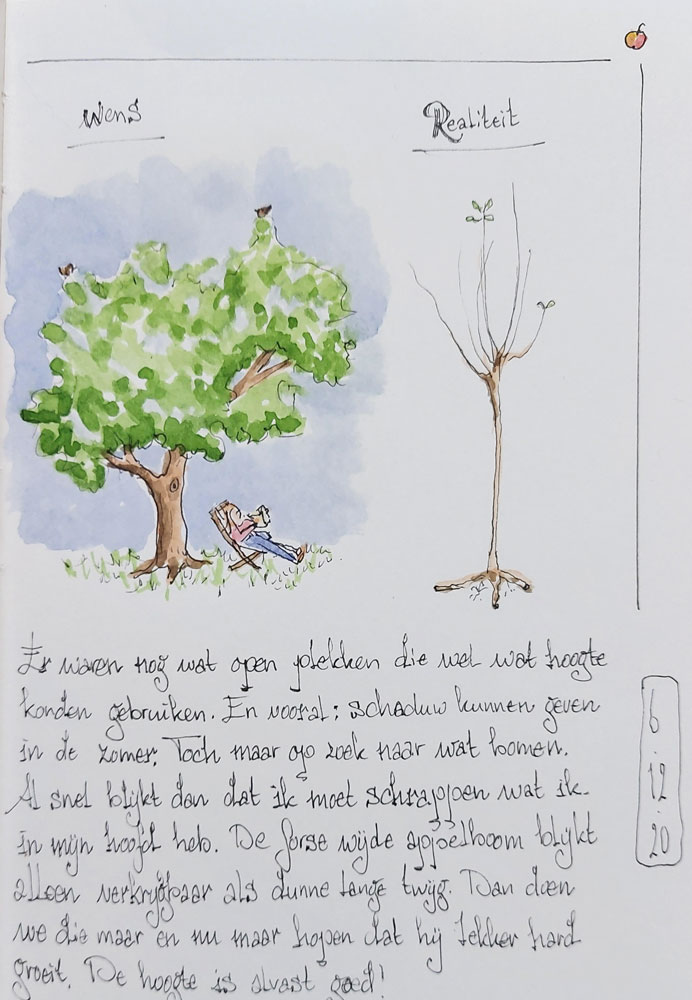 Wens
Realiteit
Er waren nog wat open plekken die wel wat hoogte
konden gebruiken. En vooral: schaduw kunnen geven
in de zomer. Toch maar op zoek naar wat bomen.
Al snel blijkt dan dat ik moet schrappen wat ik
in mijn hoofd heb. De forse wijde appelboom blijkt
alleen verkrijgbaar als dunne lange twijg. Dan doen
we die maar en nu maar hopen dat hij lekker hard
groeit. De hoogte is alvast goed!
6
.
12
.
20